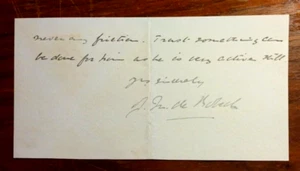 never any friction. Trust something can
be done for him as he is very active still
yrs sincerely